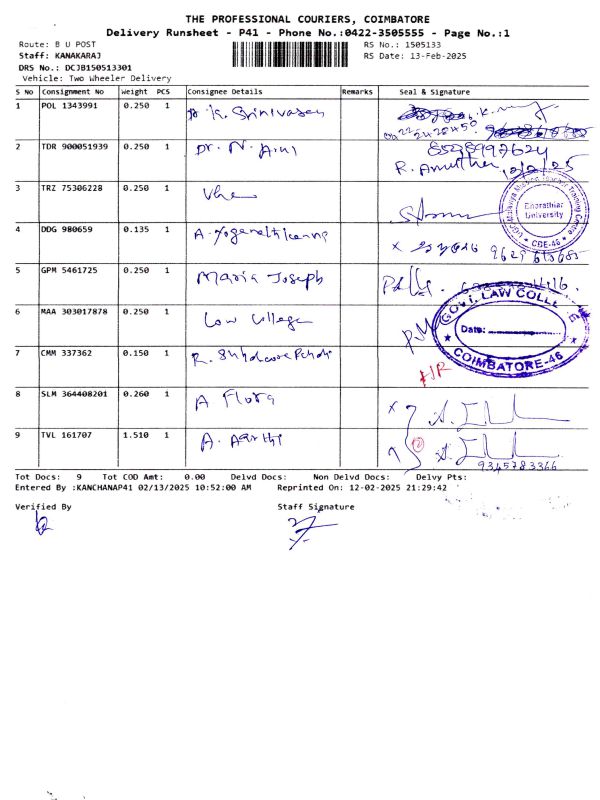 THE PROFESSIONAL COURIERS, COIMBATORE
Delivery Runsheet - P41 - Phone No.:0422-3505555 - Page No.:1
Route: B U POST RS No.: 1505133
Staff: KANAKARAJ RS Date: 13-Feb-2025
DRS No.: DCJB150513301
Vehicle: Two Wheeler Delivery
S No Consignment No Weight PCS Consignee Details Remarks Seal & Signature
1 POL 1343991 0.250 1 K. Srinivasan
2 TDR 900051939 0.250 1 Dr. N. 8528997624
R.
3 TRZ 75306228 0.250 1
Bharathiar
University
CBE-46
4 DDG 980659 0.135 1 A. x
5 GPM 5461725 0.250 1 Maria Joseph
6 MAA 303017878 0.250 1 Law College
GOVT. LAW COLLEGE
Date:
COIMBATORE-46
7 CMM 337362 0.150 1 R.
8 SLM 364408201 0.260 1 A Flora x
9 TVL 161707 1.510 1 A. Aarthi
9345783366
Tot Docs: 9 Tot COD Amt: 0.00 Delvd Docs: Non Delvd Docs: Delvy Pts:
Entered By :KANCHANAP41 02/13/2025 10:52:00 AM Reprinted On: 12-02-2025 21:29:42
Verified By Staff Signature